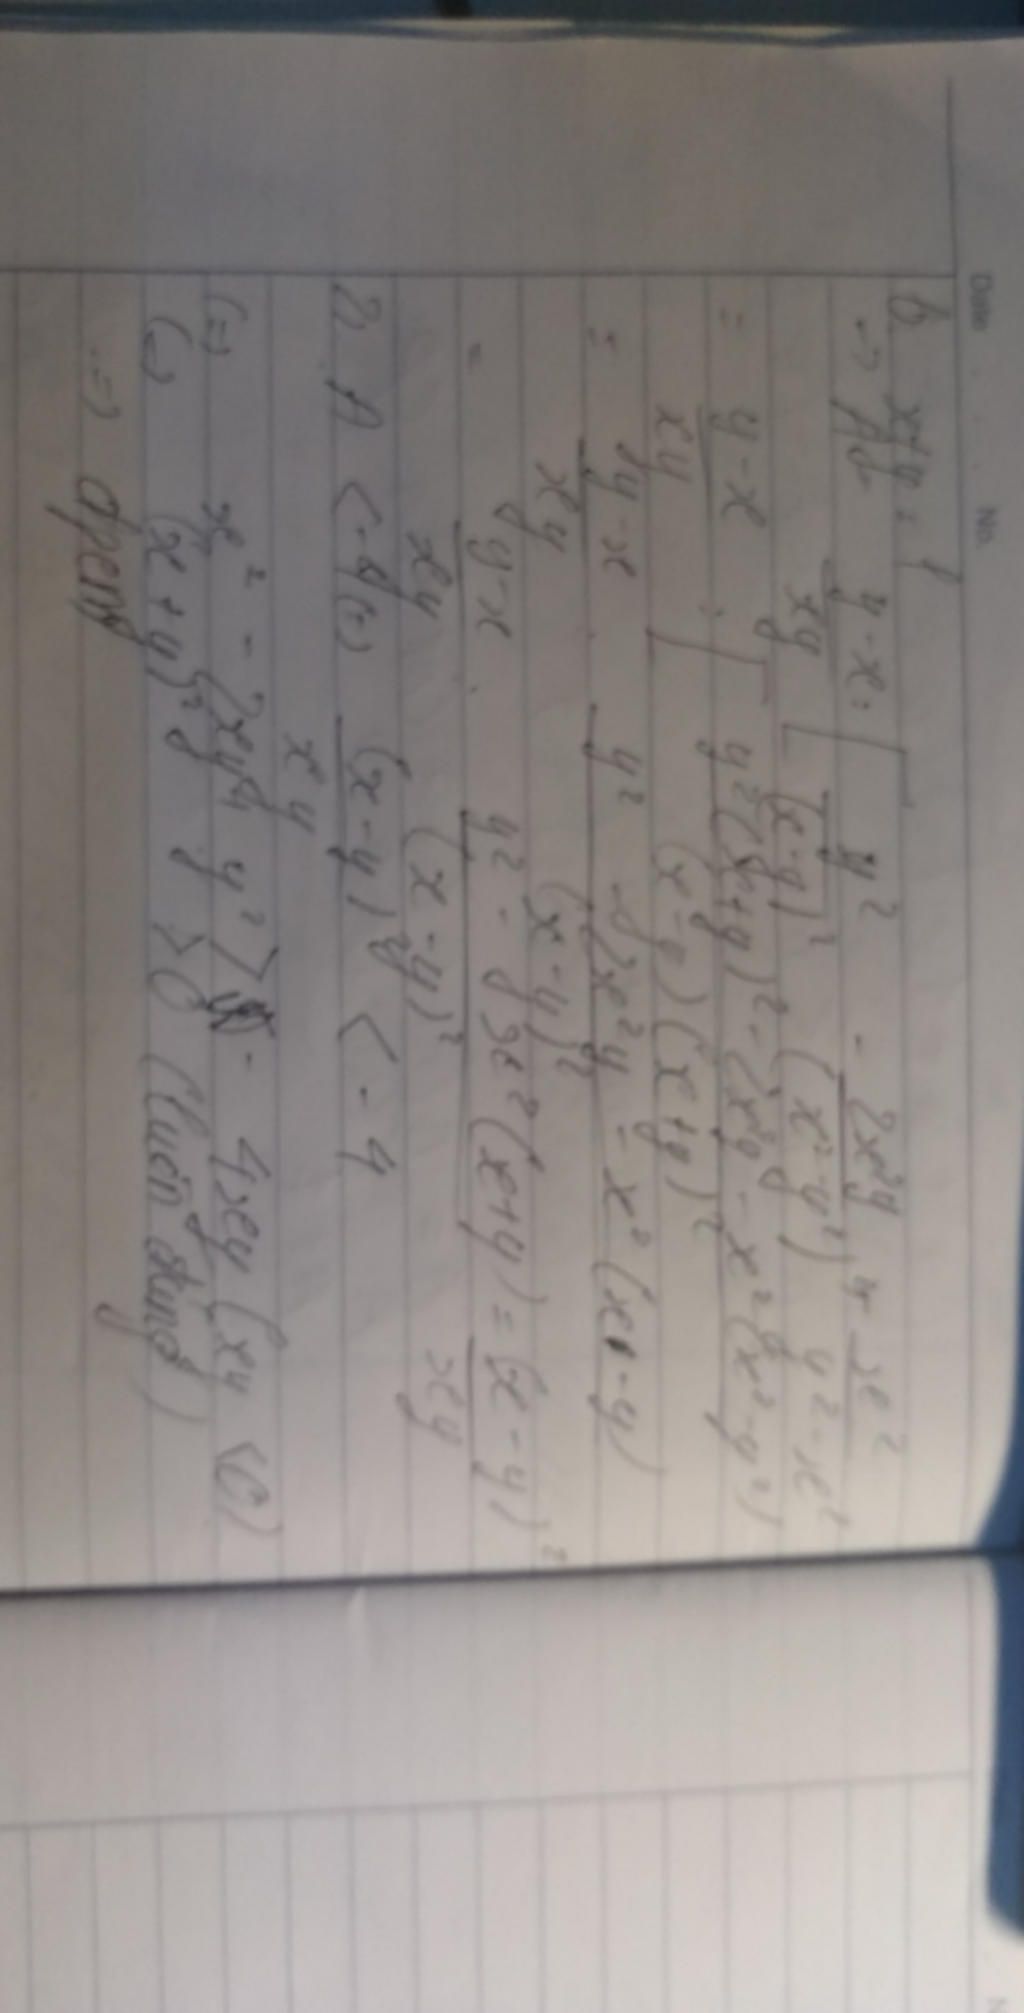 Date No.
b, x+y = 1
→ A = y - x : [ y² - 2x²y + x²
xy (x-y)² (x²-y²)² y²-x²
= y - x : [ y²(x+y) - 2x²y - x²(x-y)
xy (x-y)(x+y)²
= y - x . y² - 2x²y - x²(x-y)
xy (x-y)²
= y-x . y² - x²(x+y) = (x-y)²
xy (x-y)² xy
2, A < -4 (=) (x-y)² < -4
xy
(=) x² - 2xy + y² > - 4xy (xy < 0)
(=) (x+y)² > 0 (luôn đúng)
=) đpcm